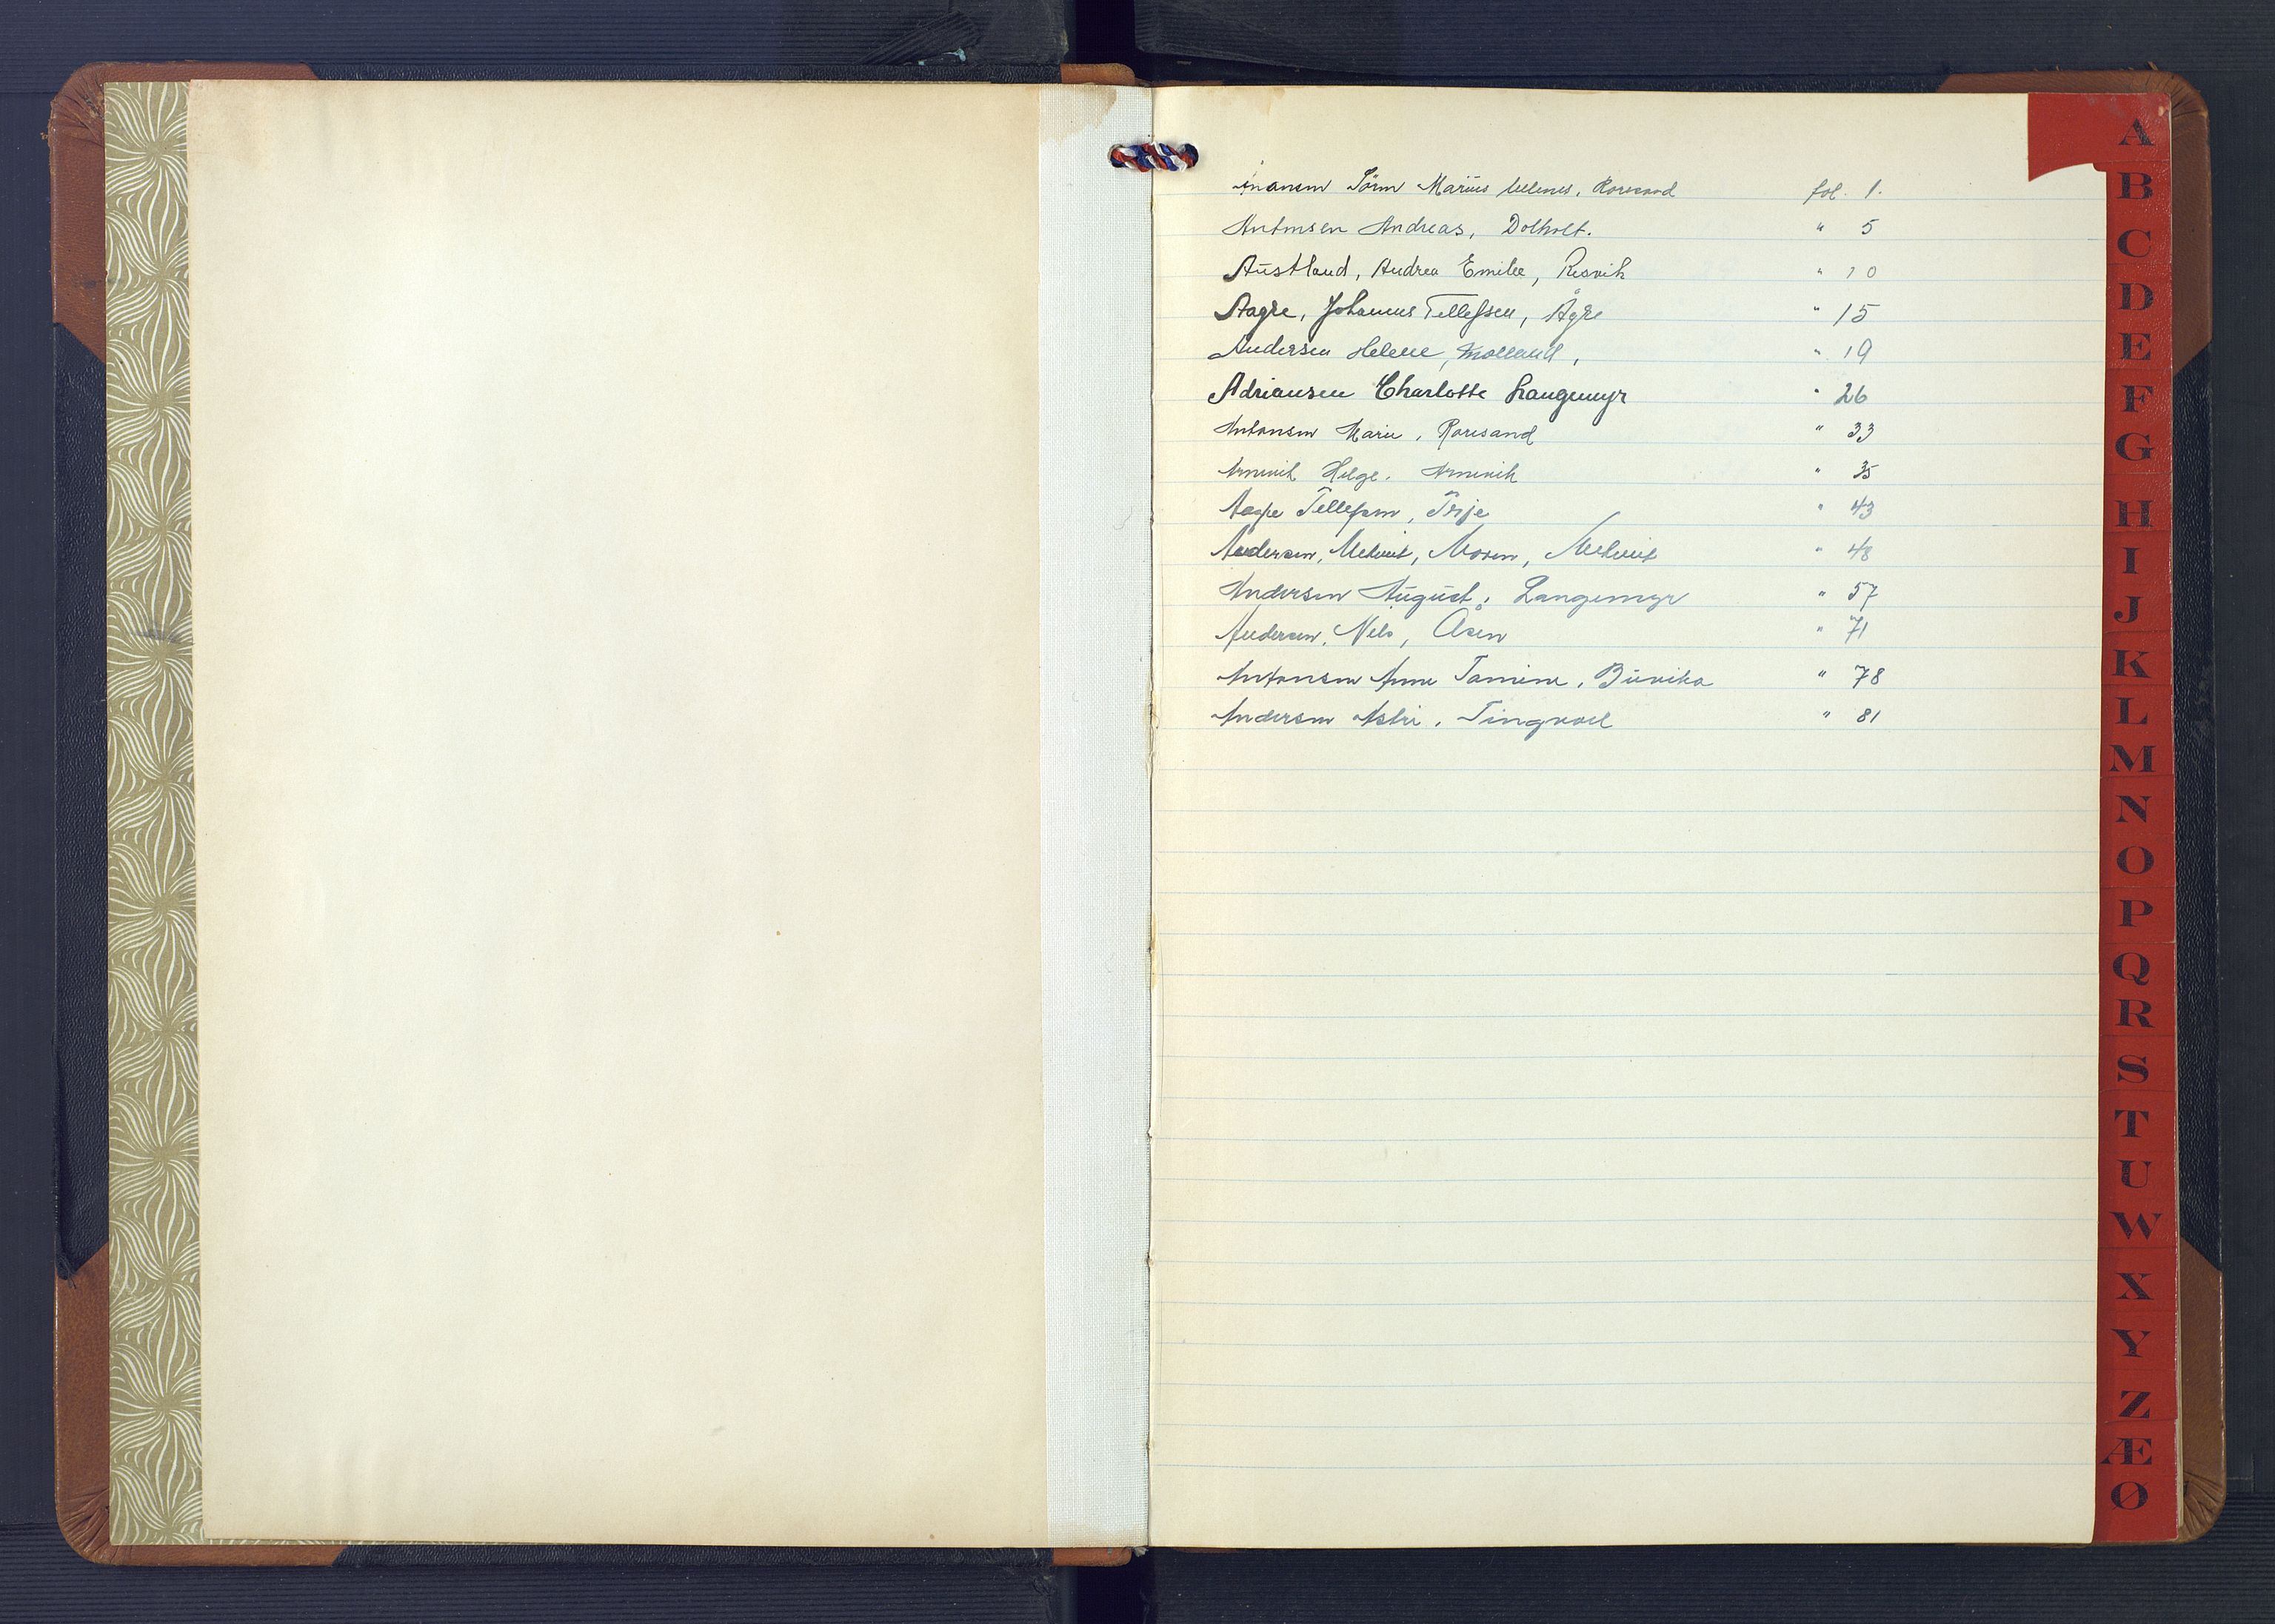 Marius Roresand fol. 1.
Andreas, Dolholt. " 5
Austland, Andrea Emilie, Resvik " 10
Aagre, Johannes Tellefsen, Ågre " 15
Andersen Helene, Molland, " 19
Adriansen Charlotte Langemyr " 26
Antonsen Marie, Roresand " 33
Arnevik Helge. Arnevik " 35
Tellefsen, " 43
Andersen, Moren, " 48
Andersen August, Langemyr " 57
Andersen, Nels, Åsen " 71
Antonsen Anne Tomine, Buvika " 78
Andersen Astri, Tingvoll " 81
A
B
C
D
E
F
G
H
I
J
K
L
M
N
O
P
Q
R
S
T
U
W
X
Y
Z
Æ
Ø